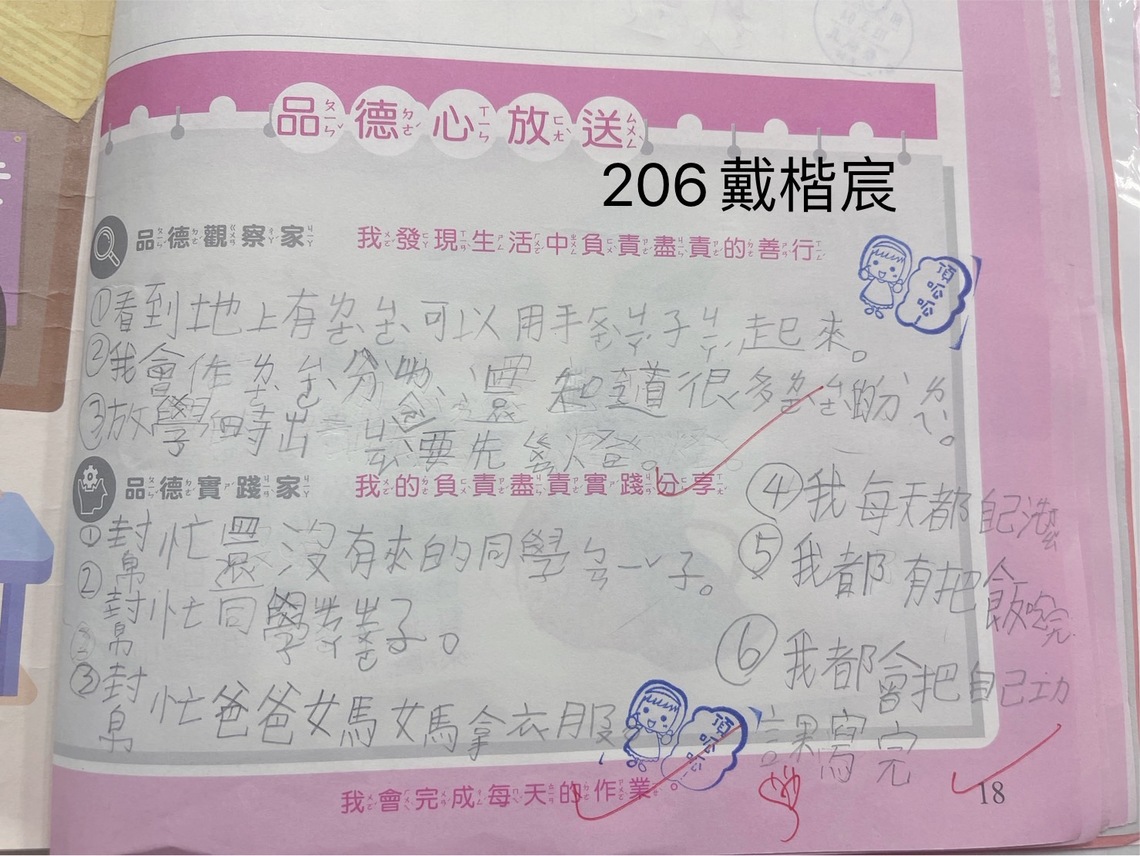 品德心放送
206 戴楷宸
品德觀察家 我發現生活中負責盡責的善行
頂呱呱
①看到地上有ㄌㄜˋㄙㄜˋ可以用手 起來。
②我會作ㄌㄜˋㄙㄜˋ分 還知道很多ㄌㄜˋㄙㄜˋ
③放學時出 去要先 燈。
品德實踐家 我的負責盡責實踐分享
①幫忙還沒有來的同學ㄅㄢ 子。
②幫忙同學 子。
③幫忙爸爸媽媽拿衣服
④我每天都自己洗
⑤我都有把飯吃完
⑥我都會把自己功
課寫完
頂呱呱
我會完成每天的作業。
18